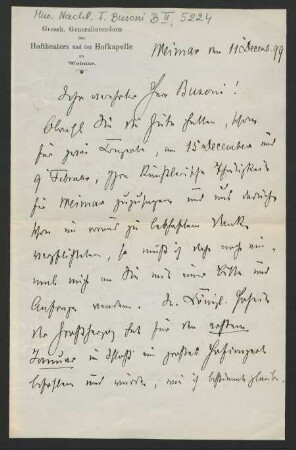 Mus. Nachl. F. Busoni B II, 5224
Grossh. Generalintendanz
des
Hoftheaters und der Hofkapelle
zu
Weimar.
Weimar den 11 Decemb. 99
Sehr verehrter Herr Busoni!
Obwohl Sie die Güte hatten, schon
für zwei Concerte, am 15 December und
9 Februar, Ihre künstlerische Thätigkeit
für Weimar zuzusagen und uns dadurch
schon im voraus zu lebhaftem Dank
verpflichteten, so muß ich doch noch ein-
mal mich an Sie mit einer Bitte und
Anfrage wenden. Se. Königl. Hoheit
der Großherzog hat für den ersten
Januar im Schloß ein großes Hofconcert
befohlen und würde, wie ich bestimmt glaube,